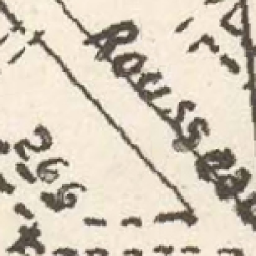 Roussea
266